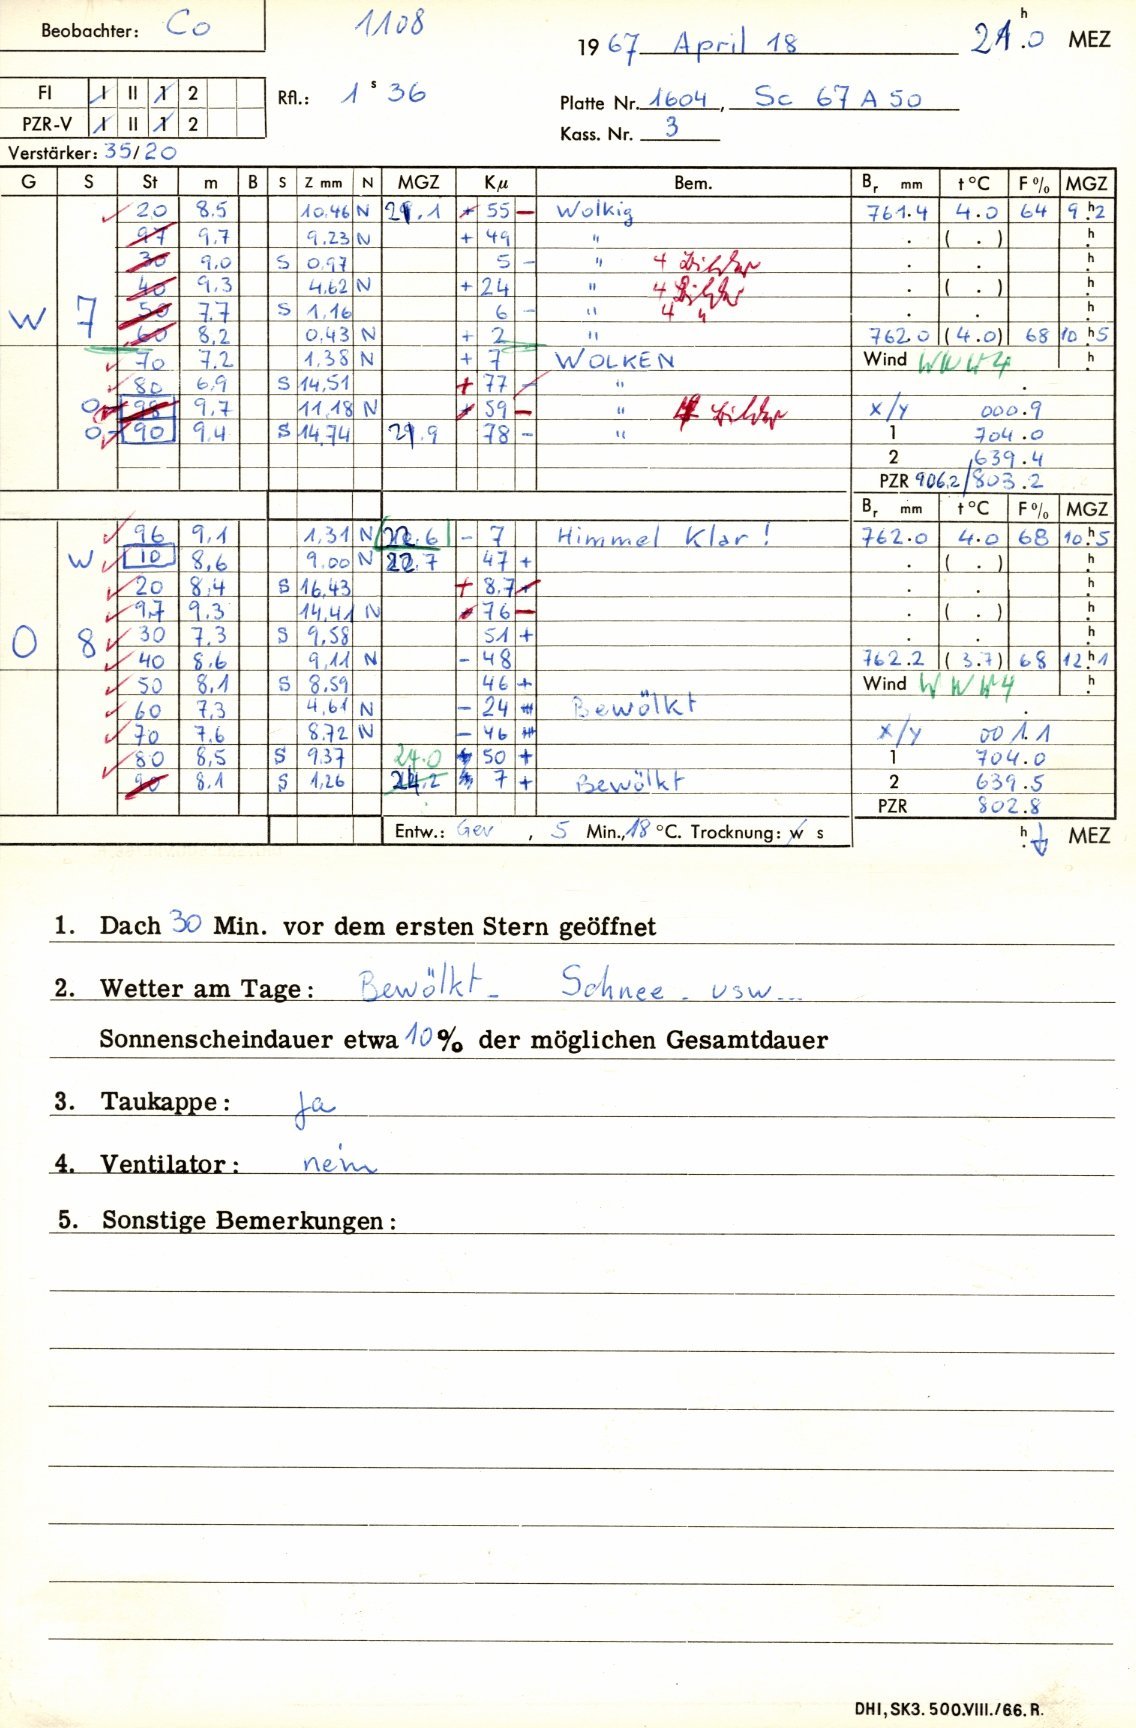 Beobachter: Co 1108 1967 April 18 21.h0 MEZ
FI I II 1 2 Rfl.: 1 s 36 Platte Nr. 1604, Sc 67 A 50
PZR-V I II 1 2 Kass. Nr. 3
Verstärker: 35/20
G S St m B S Z mm N MGZ Kµ Bem. Br mm t°C F% MGZ
20 8.5 10.46 N 21.1 + 55 – Wolkig 761.4 4.0 64 9.h2
97 9.7 9.23 N + 49 " . ( . ) h
30 9.0 S 0.97 5 – " 4 Bilder . . h
40 9.3 4.62 N + 24 " 4 Bilder . ( . ) h
W 7 50 7.7 S 1.16 6 – " 4 " . . h
60 8.2 0.43 N + 2 " 762.0 (4.0) 68 10.h5
70 7.2 1.38 N + 7 WOLKEN Wind WNW 4 h
80 6.9 S 14.51 + 77 – "
98 9.7 11.18 N + 59 – " 4 Bilder x/y 000.9
90 9.4 S 14.74 21.9 78 – " 1 704.0
2 639.4
PZR 906.2/803.2
Br mm t°C F% MGZ
96 9.1 1.31 N 22.6 – 7 Himmel Klar! 762.0 4.0 68 10.h5
W 10 8.6 9.00 N 22.7 47 + . ( . ) h
20 8.4 S 16.43 + 8.7 . . h
97 9.3 14.41 N 76 – . ( . ) h
O 8 30 7.3 S 9.58 51 + . . h
40 8.6 9.11 N – 48 762.2 (3.7) 68 12.h1
50 8.1 S 8.59 46 + Wind WNW 4 h
60 7.3 4.61 N – 24 Bewölkt
70 7.6 8.72 N – 46 x/y 001.1
80 8.5 S 9.37 24.0 50 + 1 704.0
90 8.1 S 1.26 24.2 7 + Bewölkt 2 639.5
PZR 802.8
Entw.: Gev, 5 Min., 18 °C. Trocknung: w s h MEZ
1. Dach 30 Min. vor dem ersten Stern geöffnet
2. Wetter am Tage: Bewölkt – Schnee – usw...
Sonnenscheindauer etwa 10% der möglichen Gesamtdauer
3. Taukappe: Ja
4. Ventilator: nein
5. Sonstige Bemerkungen:
DHI, SK3. 500.VIII./66. R.